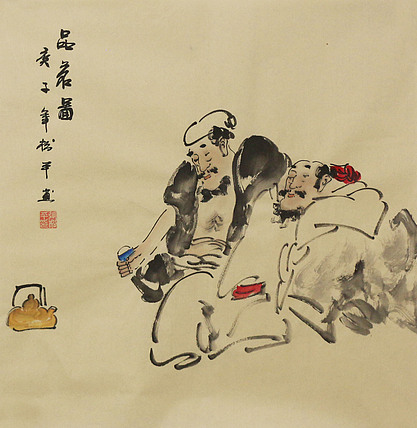 品茗圖
庚子年松平畫